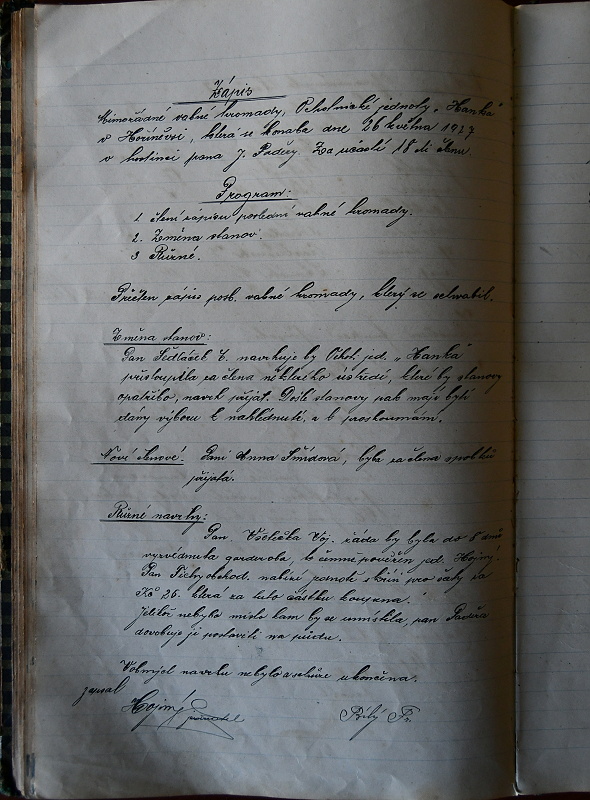 Zápis
Mimořádné valné hromady, Ochotnické jednoty „Hanka“
v Hořiněvsi, která se konala dne 26 května 1927
v hostinci pana J. Paděry. Za účasti 18 ti členů.
Program:
1 čtení zápisu poslední valné hromady.
2. Změna stanov.
3 Různé.
Přečten zápis posl. valné hromady, který se schválil.
Změna stanov:
Pan Sedláček navrhuje by Ochot. jed. „Hanka“
přistoupila za člena některého ústředí, které by stanovy
opatřilo, návrh přijat. Došlé stanovy pak mají býti
dány výboru k nahlédnutí a k proskoumání.
Noví členové: Paní Anna Šmídová, byla za člena spolku
přijatá.
Různé návrhy:
Pan. Včelička Voj. žádá by byla do 8 dnů
vyzvednuta garderoba, k čemuž pověřen jed. Hojný.
Pan Tichý obchod. nabízí jednotě skříň pro šaty za
Kč 26. která za tuto částku koupena.
Jelikož nebylo místo kam by se umístila, pan Paděra
dovoluje ji postaviti na půdu.
Volných návrhů nebylo a schůze ukončena.
zapsal
Hojný
Bílý Fr.